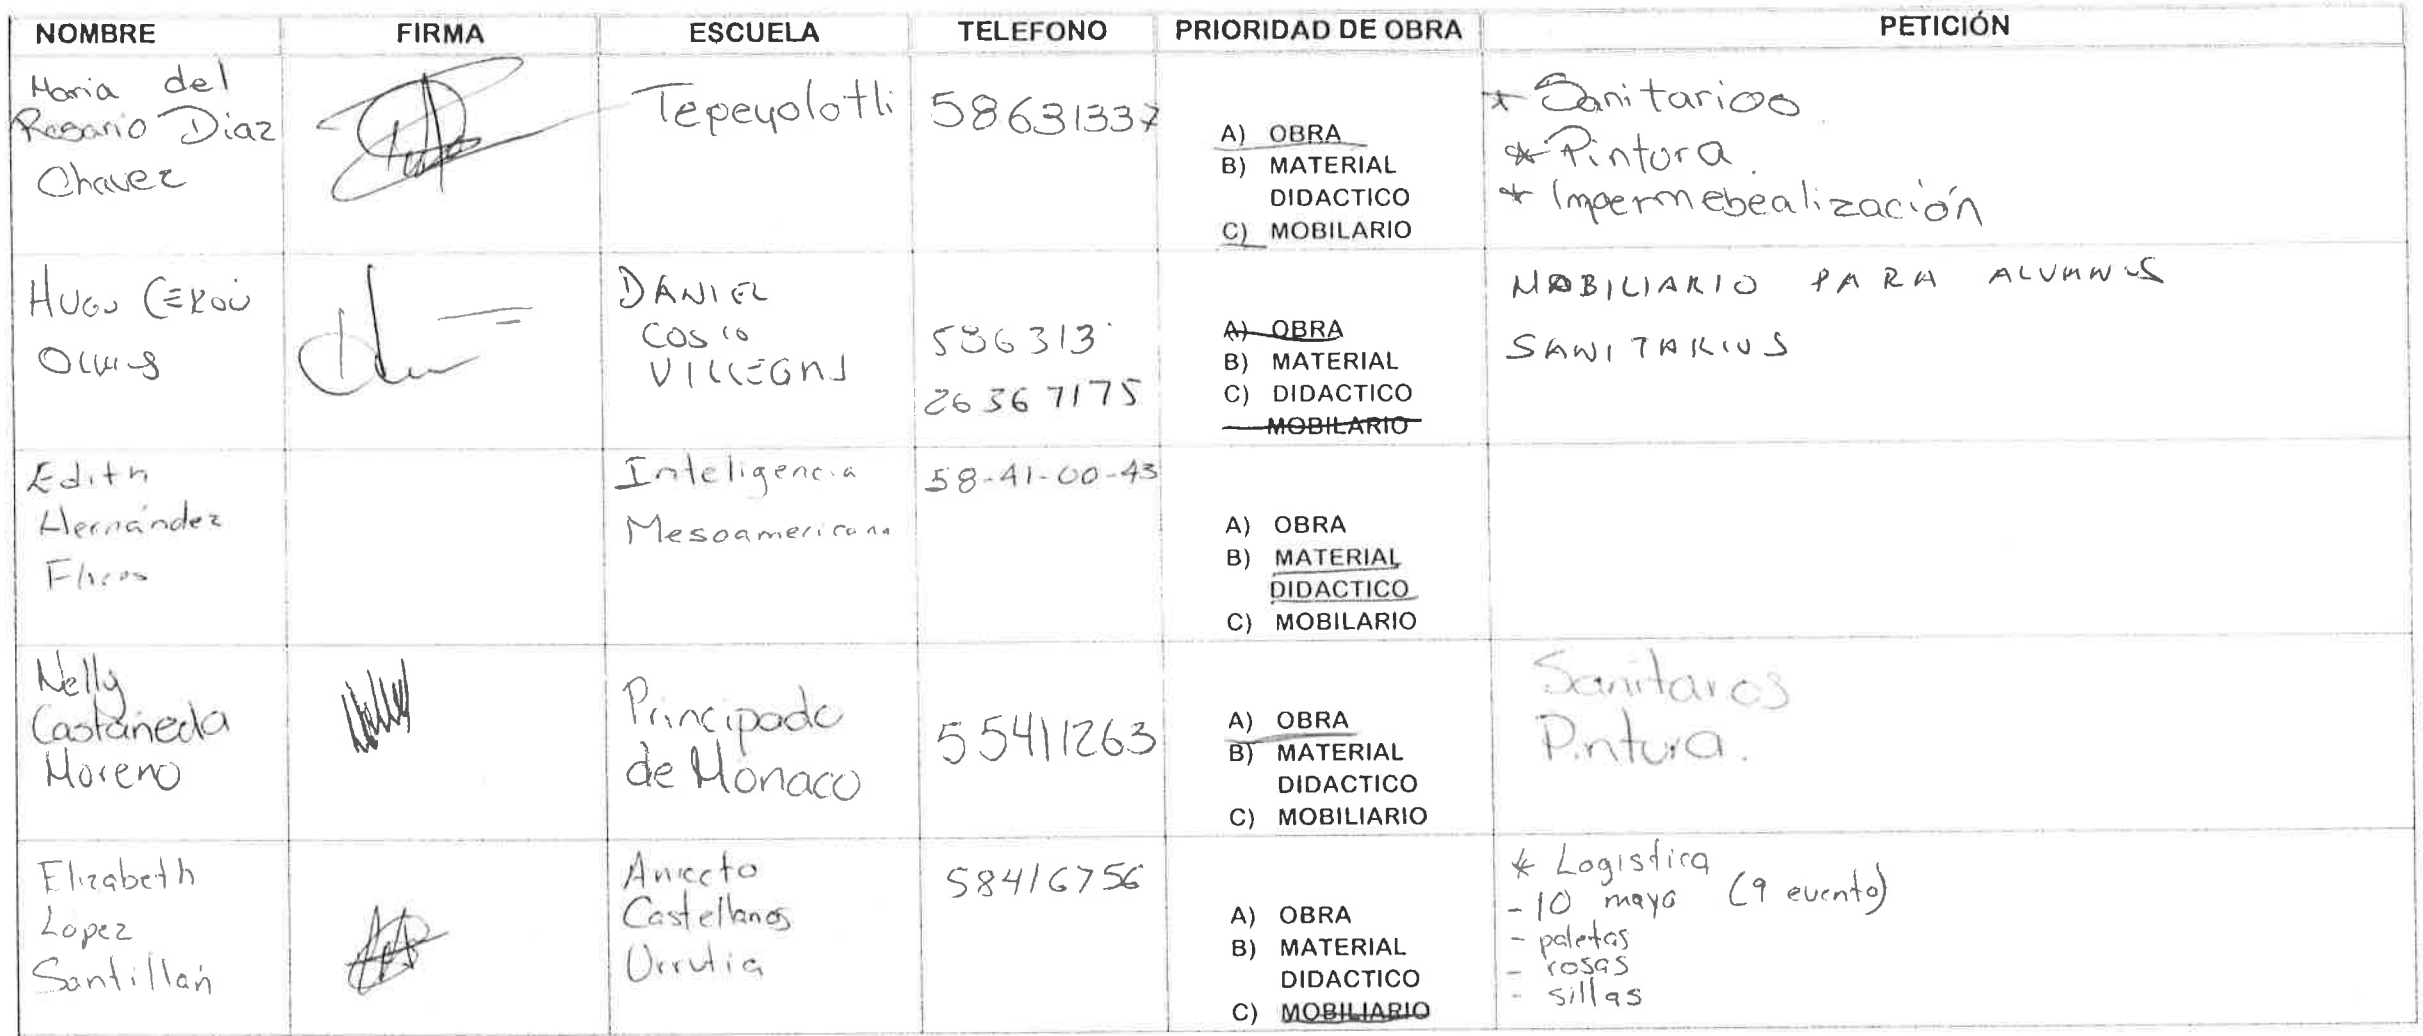 NOMBRE FIRMA ESCUELA TELEFONO PRIORIDAD DE OBRA PETICIÓN
Maria del
Rosario Diaz
Chavez
Tepeyolotli
58631337
A) OBRA
B) MATERIAL
DIDACTICO
C) MOBILARIO
* Sanitarios
* Pintura.
* Impermebealización
HUGO CERÓN
DANIEL
COSIO
VILLEGAS
586313
26367175
A) OBRA
B) MATERIAL
C) DIDACTICO
MOBILARIO
MOBILIARIO PARA ALUMNOS
SANITARIOS
Edith
Hernández
Flores
Inteligencia
Mesoamericana
58-41-00-43
A) OBRA
B) MATERIAL
DIDACTICO
C) MOBILARIO
Nelly
Castañeda
Moreno
Principado
de Monaco
55411263
A) OBRA
B) MATERIAL
DIDACTICO
C) MOBILIARIO
Sanitaros
Pintura.
Elizabeth
Lopez
Santillán
Aniceto
Castellanos
Urrutia
58416756
A) OBRA
B) MATERIAL
DIDACTICO
C) MOBILIARIO
* Logistica
- 10 mayo (9 evento)
- paletas
- rosas
- sillas